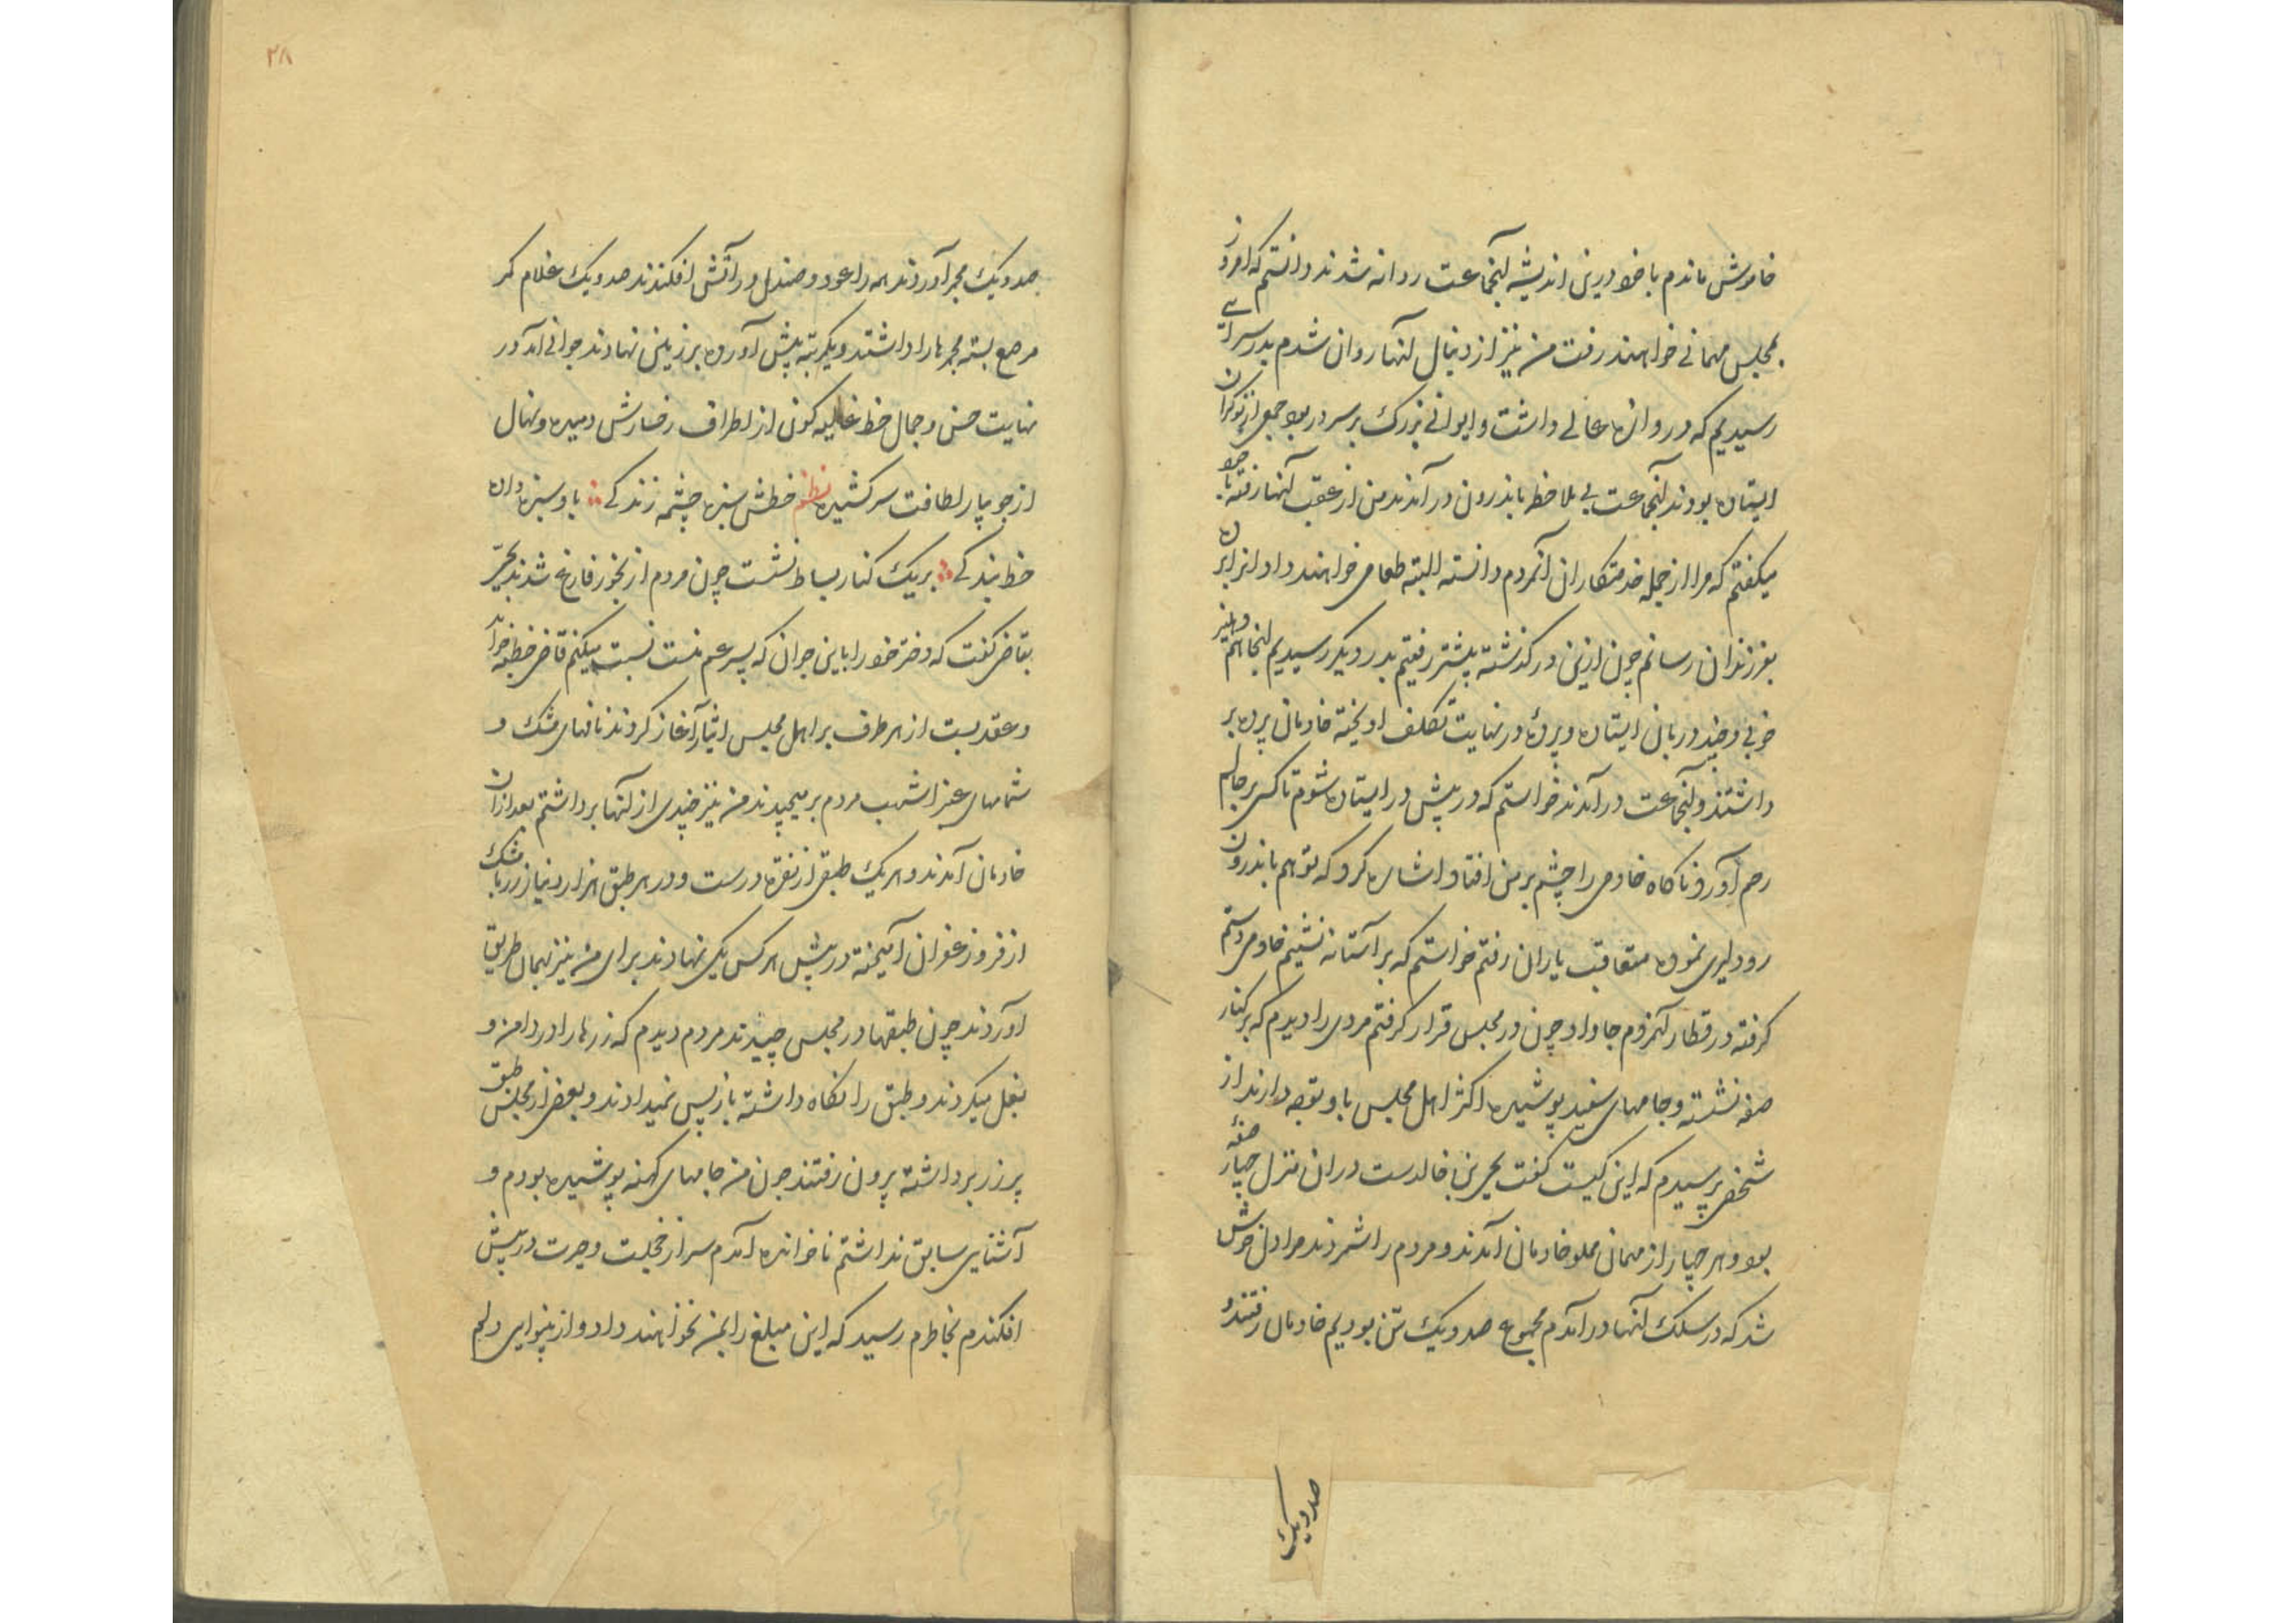 خاموش ماندم با خود درین اندیشه آنجماعت روانه شدند دانستم که امروز
بمجلس مهمانی خواهند رفت من نیز از دنبال آنها روان شدم بدر سرائے
رسیدیم که دروازه عالی داشت و ایوانی بزرک بر سر در بود جمعی از نوکران
ایستاده بودند آنجماعت بی ملاحظه باندرون در آمدند من از عقب آنها رفته با خود
میکفتم که مرا از جمله خدمتکاران آنمردم دانسته البته طعامی خواهند داد از برای
بفرزندان رسانم چون ازین در کذشته پیشتر رفتیم بدر دیکر رسیدیم آنجا هم
خوبی و چند دربان ایستاده و پرده در نهایت تکلف اویخته خادمان پرده بر
داشتند و آنجماعت در آمدند خواستم که در پیش در ایستاده شوم تا کسی بر حالم
رحم آورد ناکاه خادمی را چشم بر من افتاد اشاره کرد که تو هم باندرون
رو دلیری نموده متعاقب یاران رفتم خواستم که بر آستانه نشینم خادمی دستم
کرفته در قطار آنمردم جا داد چون در مجلس قرار کرفتم مردی را دیدم که بر کنار
صفه نشسته و جامهای سفید پوشیده اکثر اهل مجلس باو توجه دارند از
شخصی پرسیدم که این کیست کفت یحیی بن خالدست در ان منزل چهار صفه
بود و هر چهار از مهمان مملو خادمان آمدند و مردم را شمردند مرا دل خوش
شد که در سلک آنها در آمدم مجموع صد و یک تن بودیم خادمان رفتند و
صد و یک
۲۸
صد و یک مجمر آوردند همه را عود و صندل در آتش افکندند صد و یک غلام کمر
مرصع بسته مجمرها را داشتند و یکمرتبه پیش آورده بر زمین نهادند جوانی آمد در
نهایت حسن و جمال خط غالیه کون از اطراف رخسارش دمیده و نهال
از جویبار لطافت سر کشیده نظم خطش سبزه چشمه زندکے باو سبزها داده
خط بندکے بر یک کنار بساط نشست چون مردم از بخور فارغ شدند یحیی
بقاضی کفت که دختر خود را باین جوان که پسر عم منست نسبت میکنم قاضی خطبه خواند
و عقد بست از هر طرف بر اهل مجلس ایثار آغاز کردند نافهای مشک و
شمامهای عنبر اشهب مردم بر میچیدند من نیز چندی از آنها برداشتم بعد از ان
خادمان آمدند و هر یک طبقی از نقره در دست و در هر طبق هزار دینار زر با مشک
اذفر و زعفران آمیخته در پیش هر کس یکی نهادند برای من نیز بهمان طریق
آوردند چون طبقها در مجلس چیدند مردم دیدم که زرها را در دامن و
بغل میکردند و طبق را نکاه داشته باز پس نمیدادند و بعضی از مجلس طبق
پر زر برداشته بیرون رفتند چون من جامهای کهنه پوشیده بودم و
آشنایی سابق نداشتم ناخوانده آمدم سر از خجلت و حیرت در پیش
افکندم بخاطرم رسید که این مبلغ را بمن نخواهند داد و از بینوایی دلم